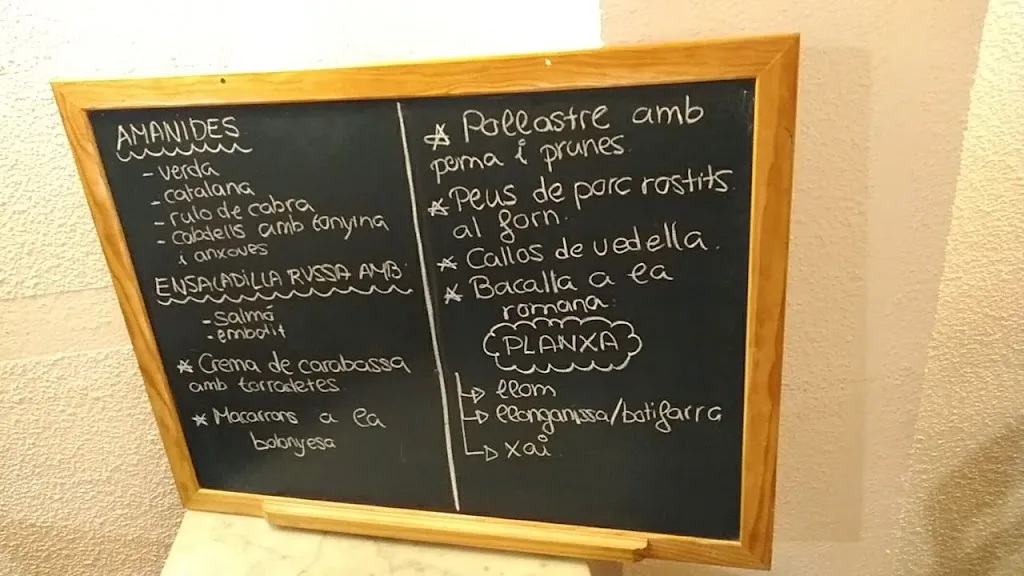 AMANIDES
- verda
- catalana
- rulo de cabra
- cabdells amb tonyina
i anxoves
ENSALADILLA RUSSA AMB:
- Salmó
- embotit
* Crema de carabassa
amb torradetes
* Macarrons a la
bolonyesa
* Pollastre amb
poma i prunes.
* Peus de porc rostits
al forn.
* Callos de vedella.
* Bacalla a la
romana.
PLANXA
→ llom
→ llonganissa/botifarra
→ xai